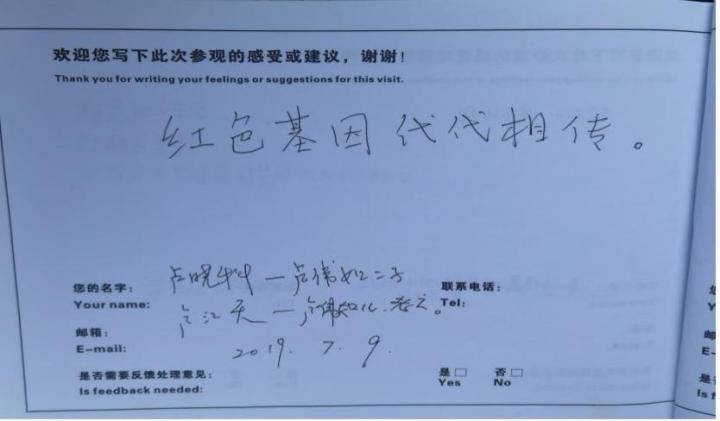 欢迎您写下此次参观的感受或建议，谢谢！
Thank you for writing your feelings or suggestions for this visit.
红色基因代代相传。
您的名字： 卢晓 一卢伟如二子
Your name: 卢江天一卢伟如儿.老之。
联系电话：
Tel:
邮箱：
E-mail:
2019. 7. 9.
是否需要反馈处理意见：
Is feedback needed:
是□ 否□
Yes No